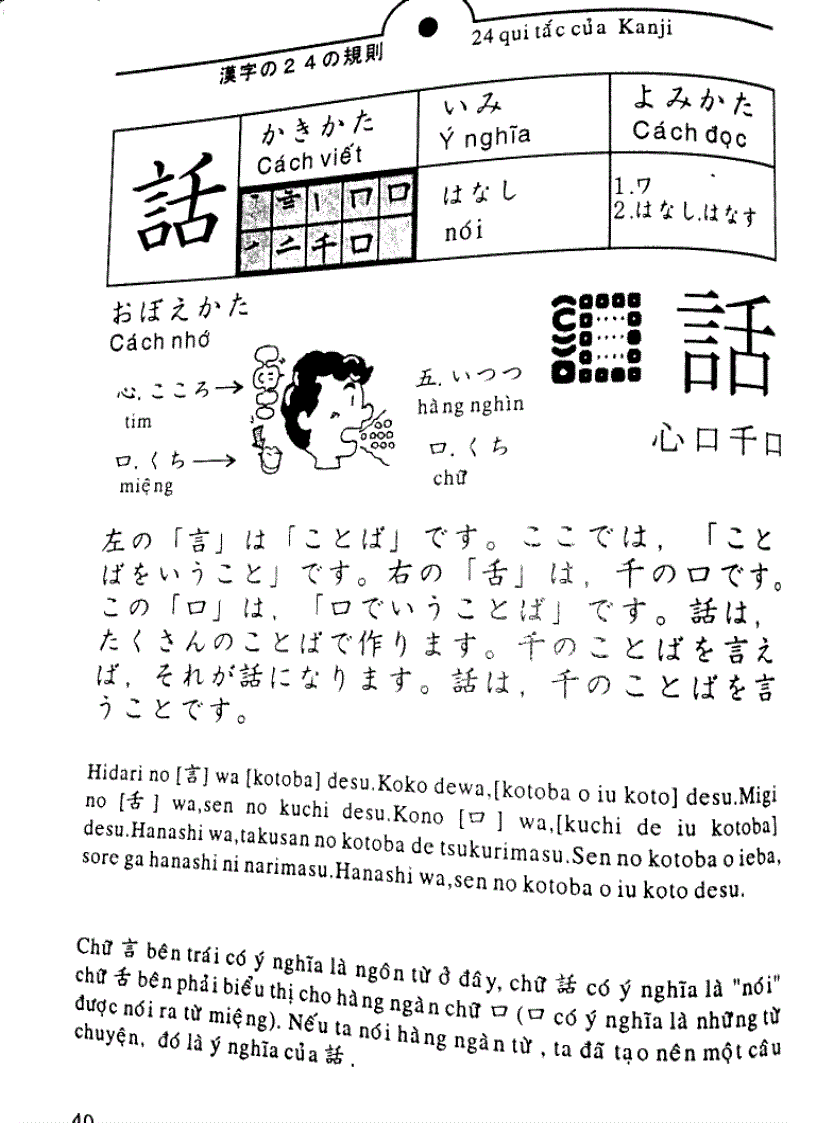 漢字の２４の規則
24 qui tắc của Kanji
話
かきかた
Cách viết
いみ
Ý nghĩa
よみかた
Cách đọc
はなし
nói
1.ワ
2.はなし.はなす
おぼえかた
Cách nhớ
心.こころ
tim
口.くち
miệng
五.いつつ
hàng nghìn
口.くち
chữ
話
心口千口
左の「言」は「ことば」です。ここでは，「こと
ばをいうこと」です。右の「舌」は，千の口です。
この「口」は，「口でいうことば」です。話は，
たくさんのことばで作ります。千のことばを言え
ば，それが話になります。話は，千のことばを言
うことです。
Hidari no [言] wa [kotoba] desu.Koko dewa,[kotoba o iu koto] desu.Migi
no [舌 ] wa,sen no kuchi desu.Kono [口 ] wa,[kuchi de iu kotoba]
desu.Hanashi wa,takusan no kotoba de tsukurimasu.Sen no kotoba o ieba,
sore ga hanashi ni narimasu.Hanashi wa,sen no kotoba o iu koto desu.
Chữ 言 bên trái có ý nghĩa là ngôn từ ở đây, chữ 話 có ý nghĩa là "nói"
chữ 舌 bên phải biểu thị cho hàng ngàn chữ 口 (口 có ý nghĩa là những từ
được nói ra từ miệng). Nếu ta nói hàng ngàn từ , ta đã tạo nên một câu
chuyện, đó là ý nghĩa của 話 .
40